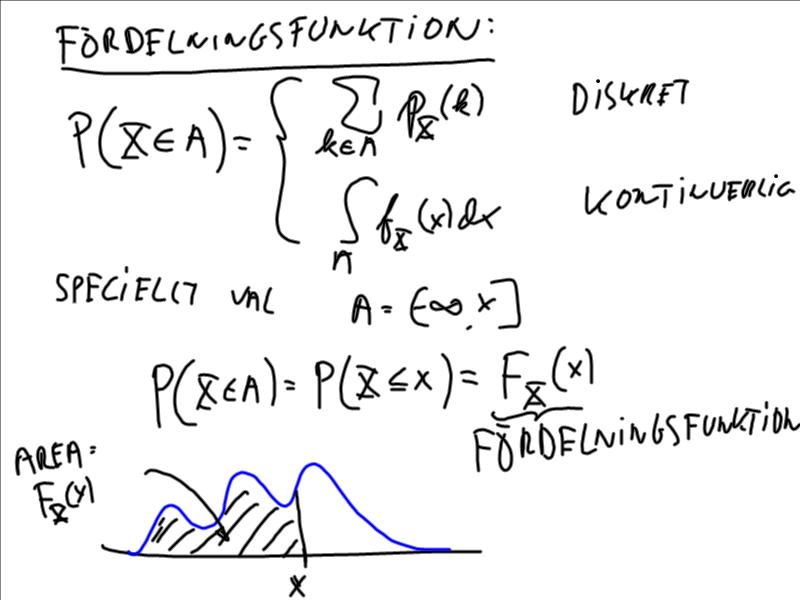 FÖRDELNINGSFUNKTION:
P(X∈A) = { ∑ k∈A p_X(k) DISKRET
∫ A f_X(x)dx KONTINUERLIG
SPECIELLT VAL A = (-∞, x]
P(X∈A) = P(X≤x) = F_X(x)
FÖRDELNINGSFUNKTION
AREA:
F_X(x)
x